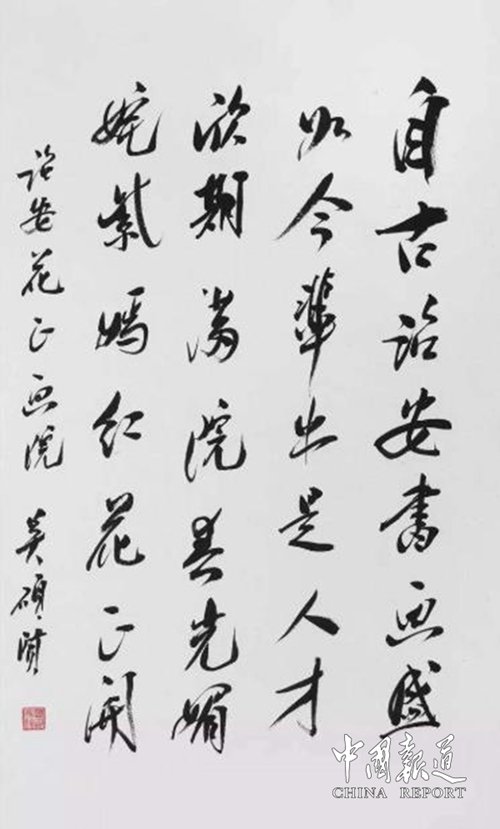 自古诏安書画盛
如今輩出是人才
欣期满院春光媚
姹紫嫣红花正开
诏安花正画院 吴硕贤
中國報道
CHINA REPORT